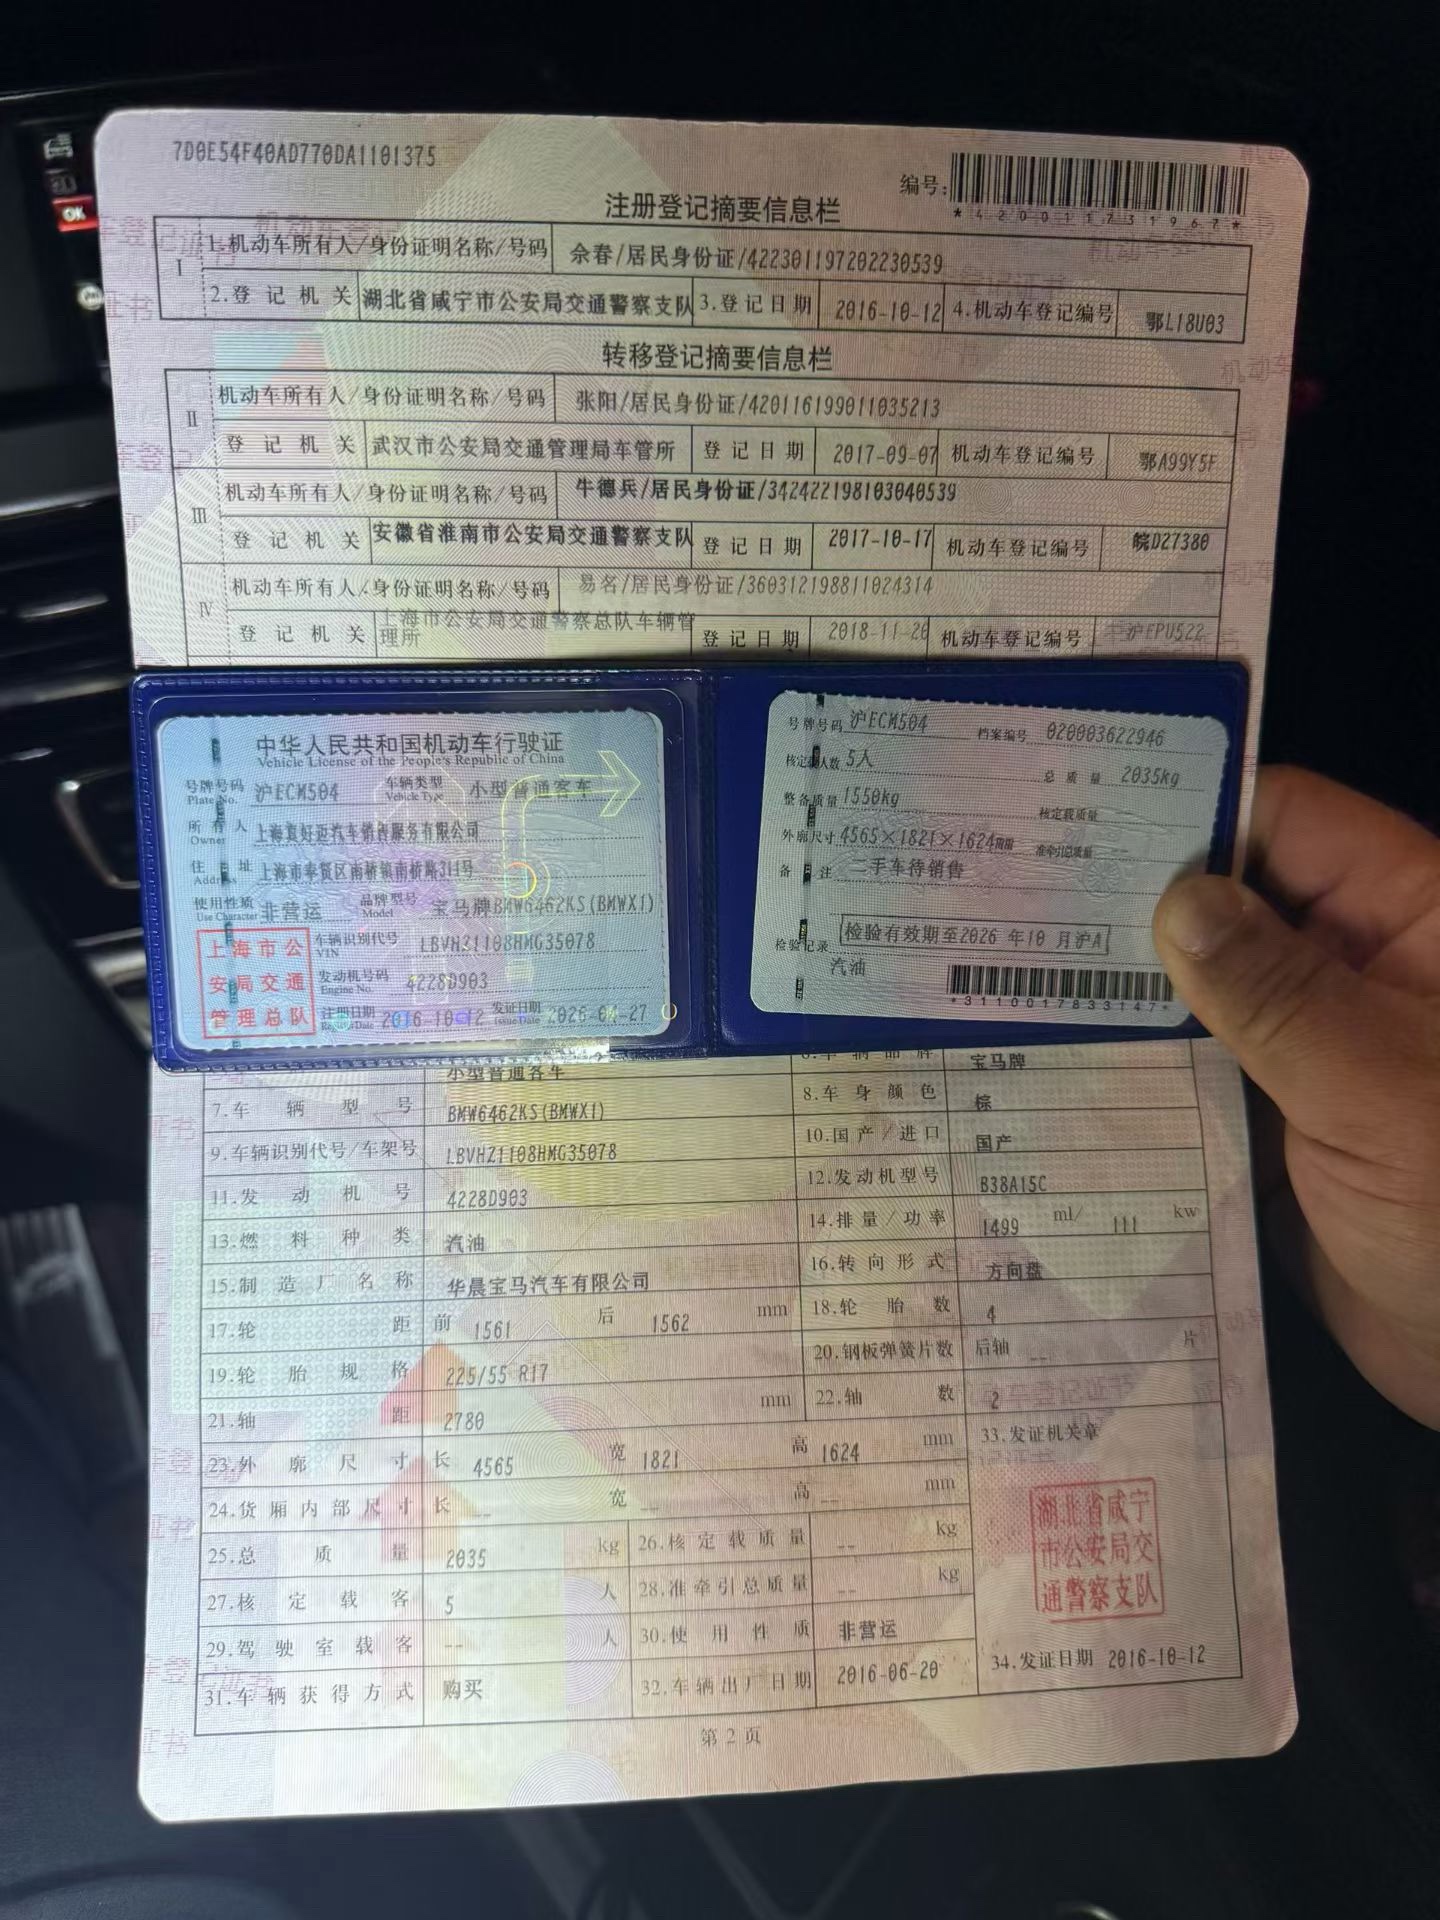 7D0E54F40AD770DA1101375
编号:
*420011731967*
注册登记摘要信息栏
I 1.机动车所有人/身份证明名称/号码 佘春/居民身份证/422301197202230539
2.登记机关 湖北省咸宁市公安局交通警察支队 3.登记日期 2016-10-12 4.机动车登记编号 鄂L18U03
转移登记摘要信息栏
II 机动车所有人/身份证明名称/号码 张阳/居民身份证/420116199011035213
登记机关 武汉市公安局交通管理局车管所 登记日期 2017-09-07 机动车登记编号 鄂A99Y5F
III 机动车所有人/身份证明名称/号码 牛德兵/居民身份证/342422198103040539
登记机关 安徽省淮南市公安局交通警察支队 登记日期 2017-10-17 机动车登记编号 皖D27380
IV 机动车所有人/身份证明名称/号码 易名/居民身份证/360312198811024314
登记机关 上海市公安局交通警察总队车辆管理所 登记日期 2018-11-26 机动车登记编号 沪EPU522
中华人民共和国机动车行驶证
Vehicle License of the People's Republic of China
号牌号码 Plate No. 沪ECM504 车辆类型 Vehicle Type 小型普通客车
所有人 Owner 上海真好迈汽车销售服务有限公司
住址 Address 上海市奉贤区南桥镇南桥路311号
使用性质 Use Character 非营运 品牌型号 Model 宝马牌BMW6462KS(BMWX1)
上海市公安局交通管理总队
车辆识别代号 VIN LBVHZ1108HMG35078
发动机号码 Engine No. 4228D903
注册日期 Register Date 2016-10-12 发证日期 Issue Date 2026-04-27
号牌号码 沪ECM504 档案编号 020003622946
核定载人数 5人 总质量 2035kg
整备质量 1550kg 核定载质量
外廓尺寸 4565×1821×1624mm 准牵引总质量
备注 二手车待销售
检验记录 检验有效期至2026年10月沪A
汽油
*3110017833147*
小型普通客车 宝马牌
7.车辆型号 BMW6462KS(BMWX1) 8.车身颜色 棕
9.车辆识别代号/车架号 LBVHZ1108HMG35078 10.国产/进口 国产
11.发动机号 4228D903 12.发动机型号 B38A15C
13.燃料种类 汽油 14.排量/功率 1499 ml/ 111 kw
15.制造厂名称 华晨宝马汽车有限公司 16.转向形式 方向盘
17.轮距 前 1561 后 1562 mm 18.轮胎数 4
19.轮胎规格 225/55 R17 20.钢板弹簧片数 后轴 -- 片
21.轴距 2780 mm 22.轴数 2
23.外廓尺寸 长 4565 宽 1821 高 1624 mm 33.发证机关章
24.货厢内部尺寸 长 -- 宽 -- 高 -- mm
25.总质量 2035 kg 26.核定载质量 -- kg
27.核定载客 5 人 28.准牵引总质量 -- kg
湖北省咸宁市公安局交通警察支队
29.驾驶室载客 -- 人 30.使用性质 非营运
31.车辆获得方式 购买 32.车辆出厂日期 2016-06-20 34.发证日期 2016-10-12
第2页